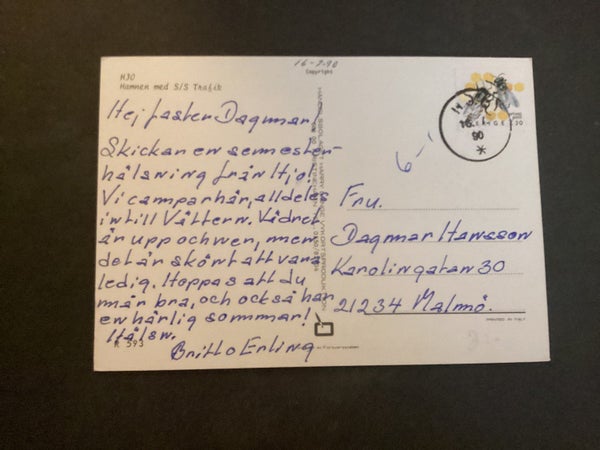 16-7.90
Copyright
HJO
Hamnen med S/S Trafik
Hej faster Dagmar!
Skickar en semester-
hälsning från Hjo!
Vi campar här, alldeles
intill Vättern. Vädret
är upp och ner, men
det är skönt att vara
ledig. Hoppas att du
mår bra, och också har
en härlig sommar!
Hälsn.
Britt o Erling
K 593
HJO
90
SVERIGE
6-
Fru.
Dagmar Hansson
Karolingatan 30
21234 Malmö.
PRINTED IN ITALY